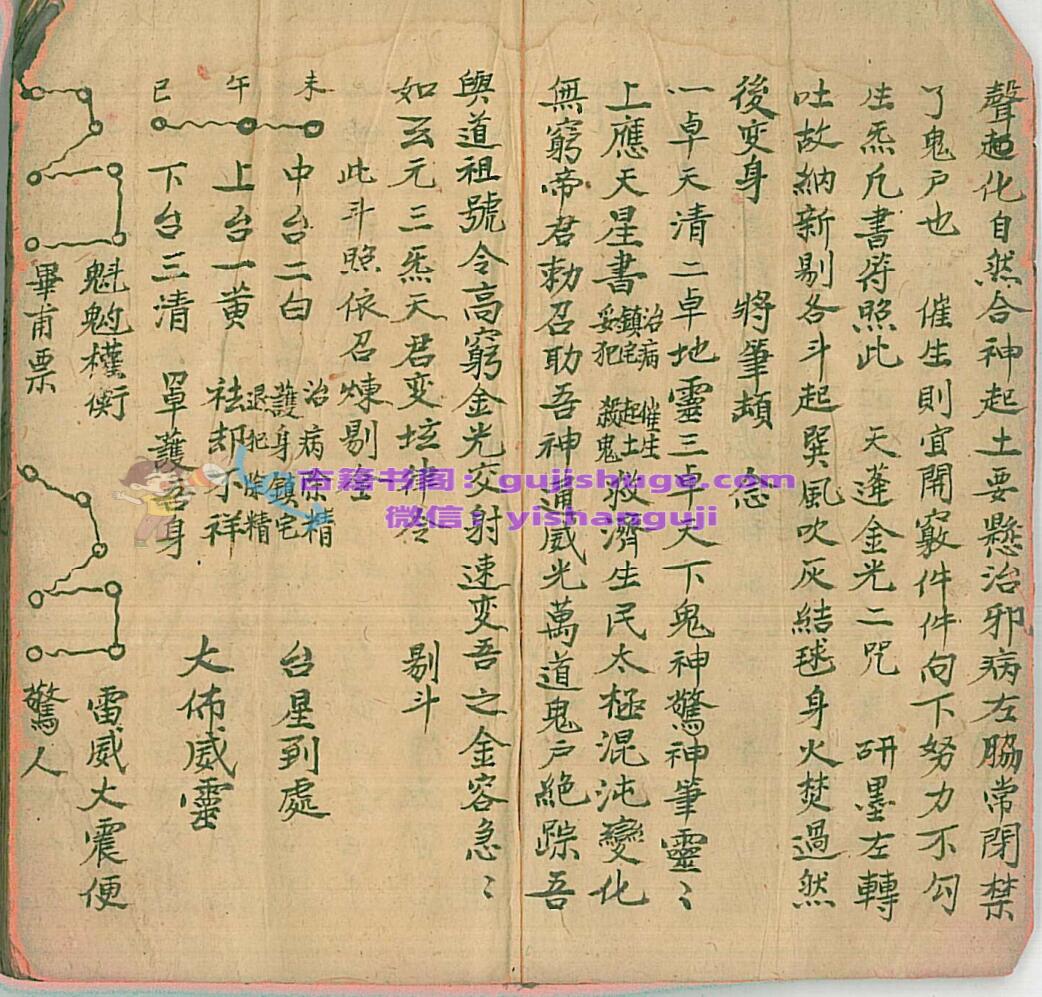 聲起化自然合神起土要懸治邪病左脇常閉禁
了鬼戶也 催生則宜開竅件件向下努力不勾
生炁凡書符照此 天蓬金光二咒 研墨左轉
吐故納新剔各斗起巽風吹灰結毬身火焚過然
後变身 將筆頡 念
一卓天清二卓地靈三卓天下鬼神驚神筆靈〻
上應天星書 治病 鎮宅 妥犯 催生 起土 殺鬼 救濟生民太極混沌變化
無窮帝君勅召助吾神通威光萬道鬼戶絕踪吾
與道祖號令高窮金光交射速变吾之金容急〻
如云元三炁天君变坛律令 剔斗
此斗照依召煉剔
未 中台二白 治病除精 護身鎮宅 台星到處
午 上台一黄 退犯除精 袪却不祥 大佈威靈
巳 下台三清 罩護吾身
魁魀權衡 雷威大震便
畢甫票 驚人
古籍书阁：gujishuge.com
微信：yishanguji